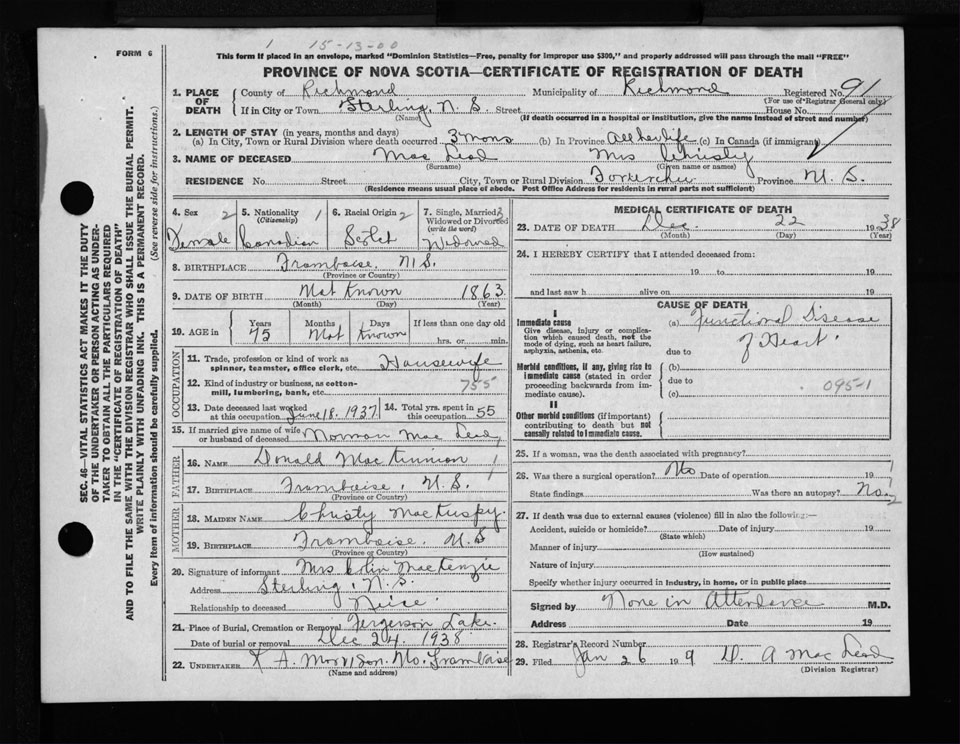 1 15-13-00
FORM 6
This form if placed in an envelope, marked "Dominion Statistics—Free, penalty for improper use $300," and properly addressed will pass through the mail "FREE"
PROVINCE OF NOVA SCOTIA—CERTIFICATE OF REGISTRATION OF DEATH
1. PLACE OF DEATH
County of Richmond Municipality of Richmond Registered No. 91
(For use of Registrar General only)
If in City or Town Sterling, N. S. Street House No.
(Name) (If death occurred in a hospital or institution, give the name instead of street and number)
2. LENGTH OF STAY (in years, months and days)
(a) In City, Town or Rural Division where death occurred 3 mons (b) In Province All her life (c) In Canada (if immigrant)
3. NAME OF DECEASED Mac Leod Mrs Christy
(Surname) (Given name or names)
RESIDENCE No. Street City, Town or Rural Division Province N. S.
(Residence means usual place of abode. Post Office Address for residents in rural parts not sufficient)
4. Sex 2 Female
5. Nationality (Citizenship) 1 Canadian
6. Racial Origin 2 Scotch
7. Single, Married, Widowed or Divorced (write the word) Widowed
8. BIRTHPLACE Framboise, N.S.
(Province or Country)
9. DATE OF BIRTH Not Known 1863
(Month) (Day) (Year)
10. AGE in Years 75 Months Not Days Known If less than one day old hrs. or min.
OCCUPATION
11. Trade, profession or kind of work as spinner, teamster, office clerk, etc. Housewife
12. Kind of industry or business, as cotton-mill, lumbering, bank, etc. 755
13. Date deceased last worked at this occupation June 18, 1937
14. Total yrs. spent in this occupation 55
15. If married give name of wife or husband of deceased Norman Mac Leod
FATHER
16. NAME Donald MacKinnion
17. BIRTHPLACE Framboise, N.S. 1
(Province or Country)
MOTHER
18. MAIDEN NAME Christy
19. BIRTHPLACE Framboise. N.S
(Province or Country)
20. Signature of informant Mrs Colin MacKenzie
Address Sterling, N.S.
Relationship to deceased Neice
21. Place of Burial, Cremation or Removal Fergerson Lake.
Date of burial or removal Dec 24. 1938
22. UNDERTAKER A. Morrison. Framboise
(Name and address)
MEDICAL CERTIFICATE OF DEATH
23. DATE OF DEATH Dec. 22 1938
(Month) (Day) (Year)
24. I HEREBY CERTIFY that I attended deceased from:
19 to 19
and last saw h alive on 19
CAUSE OF DEATH
I
Immediate cause
Give disease, injury or complication which caused death, not the mode of dying, such as heart failure, asphyxia, asthenia, etc.
(a) Functional Disease
of Heart.
due to
Morbid conditions, if any, giving rise to immediate cause (stated in order proceeding backwards from immediate cause).
(b)
due to
(c) 095-1
II
Other morbid conditions (if important) contributing to death but not causally related to immediate cause.
25. If a woman, was the death associated with pregnancy?
26. Was there a surgical operation? No Date of operation 19
State findings Was there an autopsy? No
27. If death was due to external causes (violence) fill in also the following:—
Accident, suicide or homicide? Date of injury 19
(State which)
Manner of injury
(How sustained)
Nature of injury
Specify whether injury occurred in industry, in home, or in public place
Signed by None in Attendance M.D.
Address Date 19
28. Registrar's Record Number
29. Filed Jan 26 199 D. A Mac Leod
(Division Registrar)
SEC. 46—VITAL STATISTICS ACT MAKES IT THE DUTY
OF THE UNDERTAKER OR PERSON ACTING AS UNDER-
TAKER TO OBTAIN ALL THE PARTICULARS REQUIRED
IN THE "CERTIFICATE OF REGISTRATION OF DEATH"
AND TO FILE THE SAME WITH THE DIVISION REGISTRAR WHO SHALL ISSUE THE BURIAL PERMIT.
WRITE PLAINLY WITH UNFADING INK. THIS IS A PERMANENT RECORD.
Every item of information should be carefully supplied. (See reverse side for instructions.)